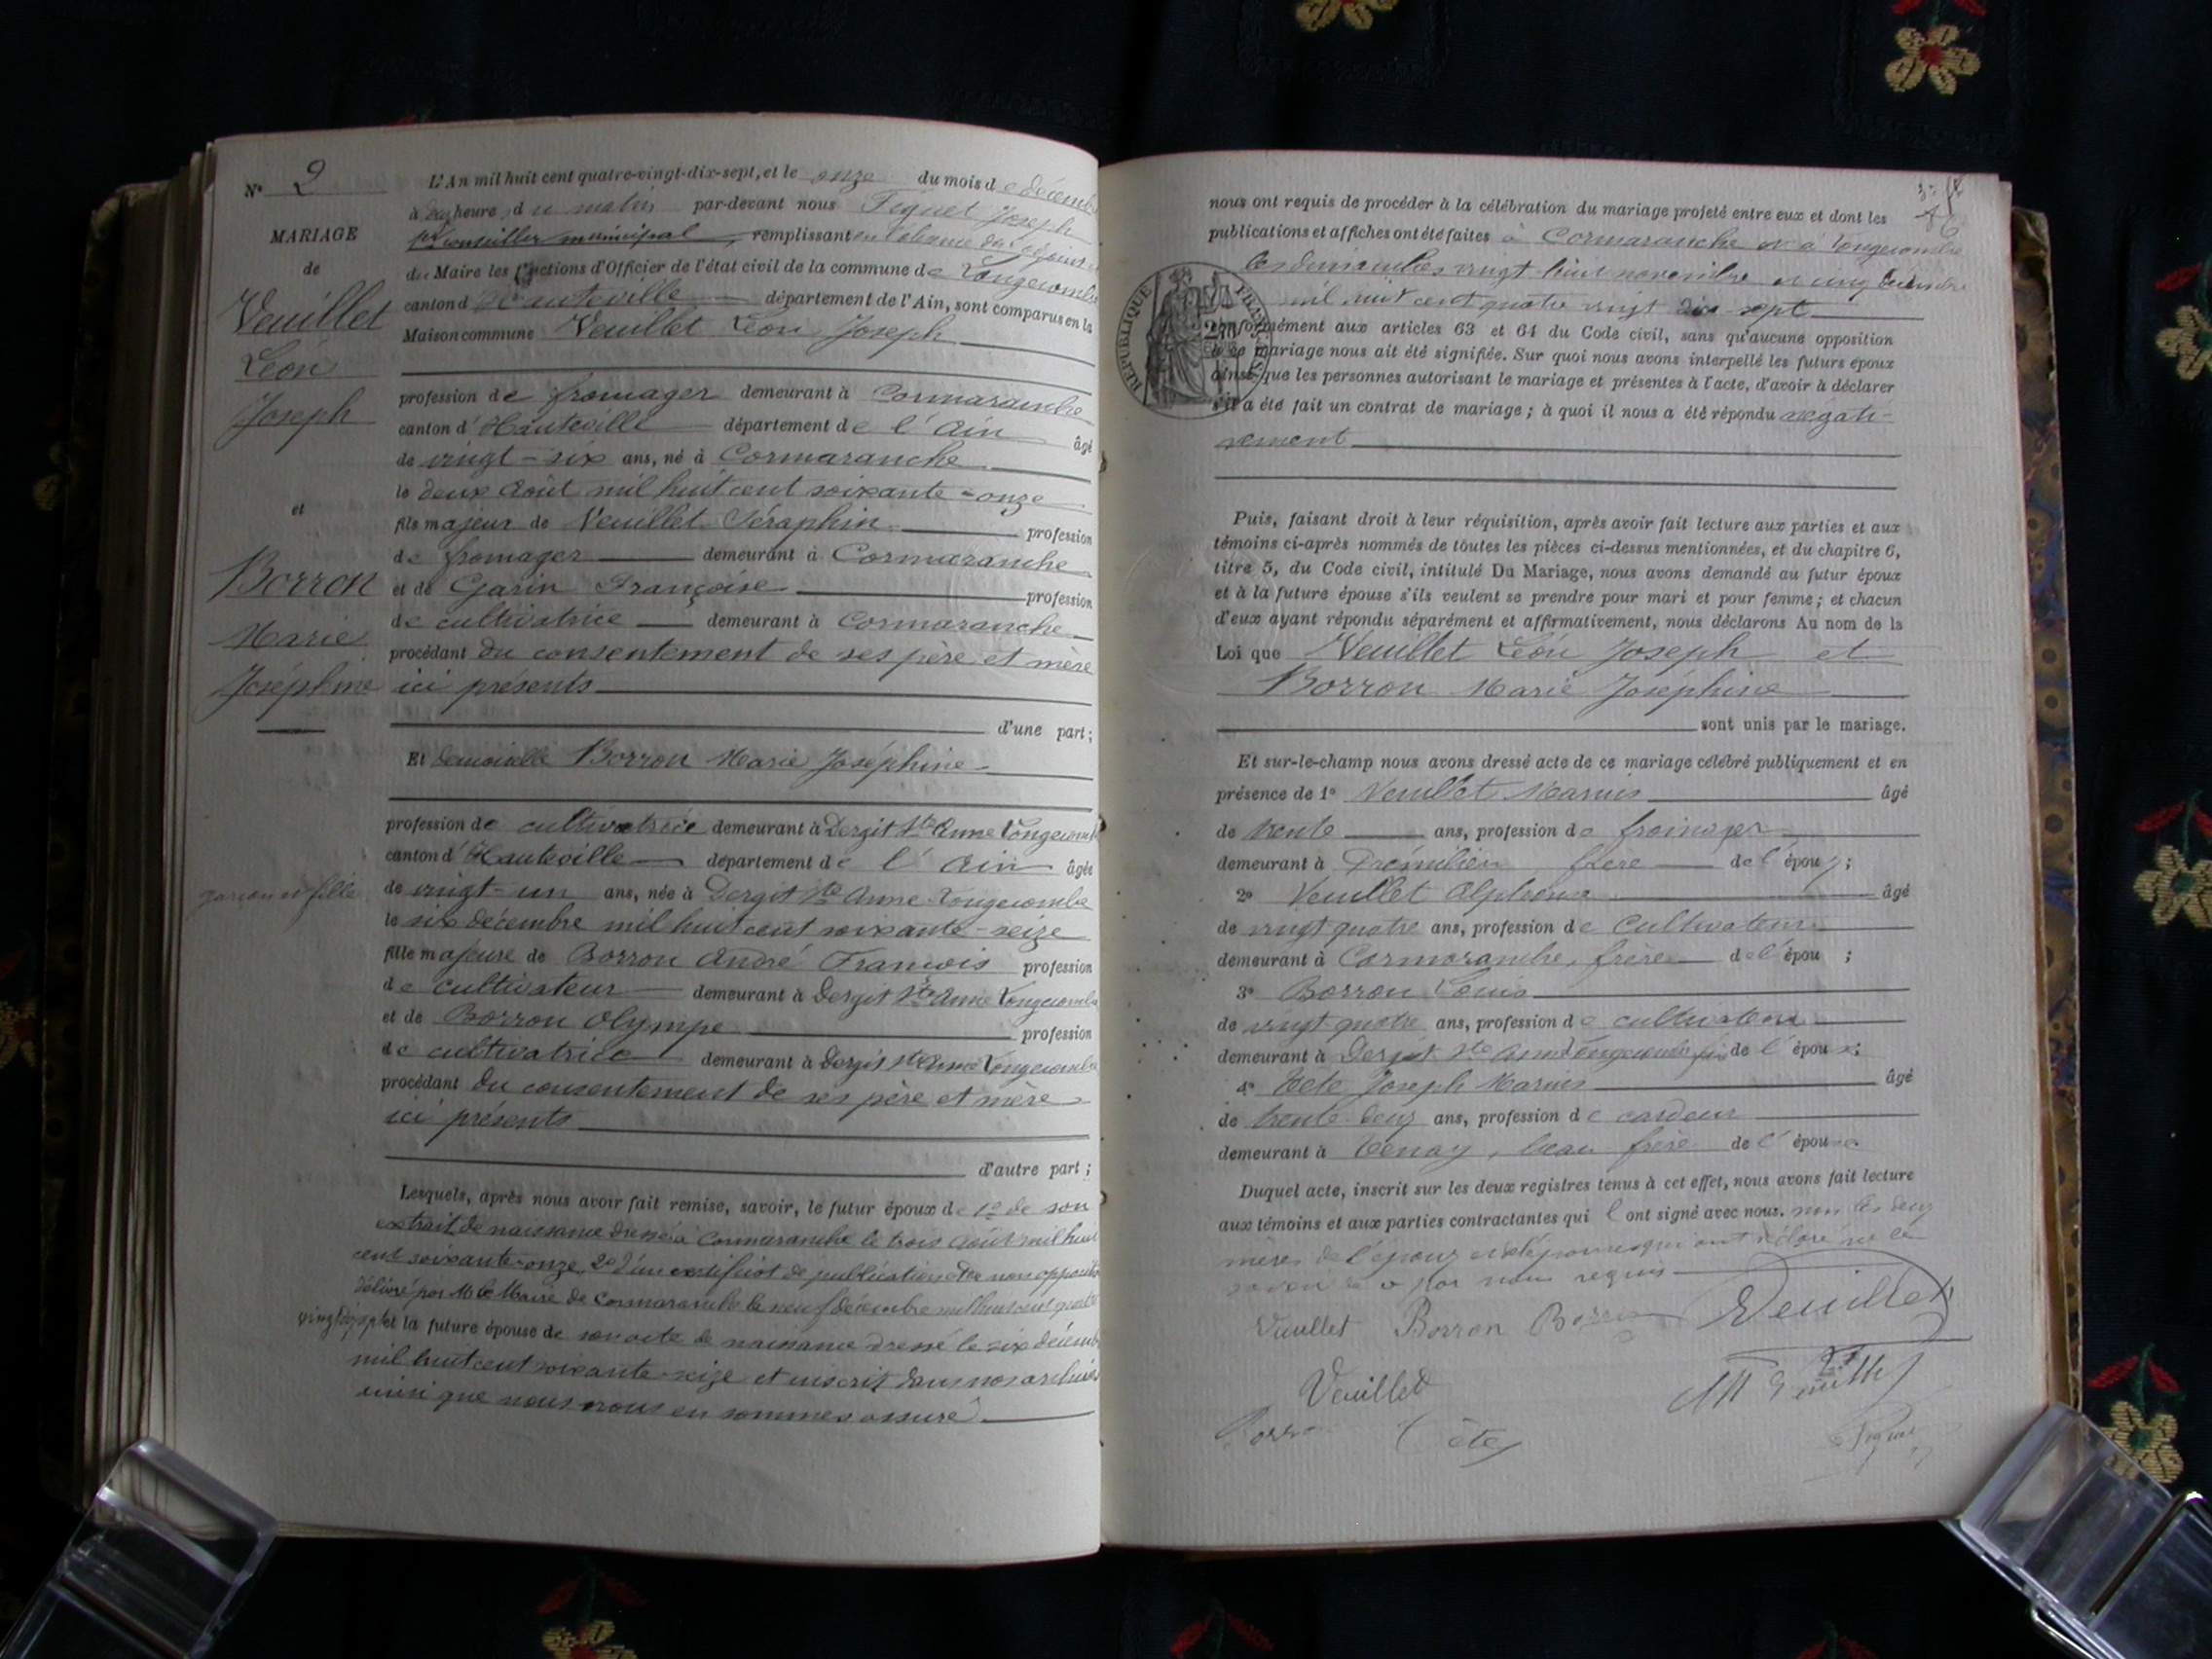 Nº 2
MARIAGE
de
Veuillet
Léon
Joseph
et
Borron
Marie
Joséphine
garçon et fille
L'An mil huit cent quatre-vingt-dix-sept, et le onze du mois de décembre
à heure du matin par-devant nous Piquet Joseph
conseiller municipal, remplissant en l'absence
du Maire les fonctions d'Officier de l'état civil de la commune de Longecombe
canton d'Hauteville département de l'Ain, sont comparus en la
Maison commune Veuillet Léon Joseph
profession de fromager demeurant à Cormaranche
canton d'Hauteville département de l'Ain âgé
de vingt-six ans, né à Cormaranche
le deux Août mil huit cent soixante-onze
fils majeur de Veuillet Séraphin profession
de fromager demeurant à Cormaranche
et de Garin Françoise profession
de cultivatrice demeurant à Cormaranche
procédant du consentement de ses père et mère
ici présents
d'une part ;
Et demoiselle Borron Marie Joséphine
profession de cultivatrice demeurant à Dergit Ste Anne Longecombe
canton d'Hauteville département de l'Ain âgée
de vingt-un ans, née à Dergit Ste Anne Longecombe
le six décembre mil huit cent soixante-seize
fille majeure de Borron André François profession
de cultivateur demeurant à Dergit Ste Anne Longecombe
et de Borron Olympe profession
de cultivatrice demeurant à Dergit Ste Anne Longecombe
procédant du consentement de ses père et mère
ici présents
d'autre part ;
Lesquels, après nous avoir fait remise, savoir, le futur époux de 1º de son
extrait de naissance dressé à Cormaranche le trois Août mil huit
cent soixante-onze, 2º d'un certificat de publication et de non opposition
délivré par M. le Maire de Cormaranche le neuf décembre mil huit cent quatre
vingt dix sept et la future épouse de son acte de naissance dressé le six décembre
mil huit cent soixante-seize et inscrit dans nos archives
ainsi que nous nous en sommes assuré
nous ont requis de procéder à la célébration du mariage projeté entre eux et dont les
publications et affiches ont été faites à Cormaranche et à Longecombe
les dimanches vingt-huit novembre et cinq décembre
mil huit cent quatre vingt dix-sept
RÉPUBLIQUE FRANÇAISE
conformément aux articles 63 et 64 du Code civil, sans qu'aucune opposition
à ce mariage nous ait été signifiée. Sur quoi nous avons interpellé les futurs époux
ainsi que les personnes autorisant le mariage et présentes à l'acte, d'avoir à déclarer
s'il a été fait un contrat de mariage ; à quoi il nous a été répondu négati-
vement
Puis, faisant droit à leur réquisition, après avoir fait lecture aux parties et aux
témoins ci-après nommés de toutes les pièces ci-dessus mentionnées, et du chapitre 6,
titre 5, du Code civil, intitulé Du Mariage, nous avons demandé au futur époux
et à la future épouse s'ils veulent se prendre pour mari et pour femme ; et chacun
d'eux ayant répondu séparément et affirmativement, nous déclarons Au nom de la
Loi que Veuillet Léon Joseph et
Borron Marie Joséphine
sont unis par le mariage.
Et sur-le-champ nous avons dressé acte de ce mariage célébré publiquement et en
présence de 1º Veuillet Marius âgé
de trente ans, profession de fromager
demeurant à Prémilieu frère de l'époux ;
2º Veuillet Alphonse âgé
de vingt quatre ans, profession de cultivateur
demeurant à Cormaranche, frère de l'épou ;
3º Borron Louis
de vingt-quatre ans, profession de cultivateur
demeurant à Dergit Ste Anne Longecombe de l'épouse ;
4º Tête Joseph Marius âgé
de trente-deux ans, profession de cardeur
demeurant à Tenay, beau frère de l'épouse
Duquel acte, inscrit sur les deux registres tenus à cet effet, nous avons fait lecture
aux témoins et aux parties contractantes qui l'ont signé avec nous. non les deux
mères de l'époux et de l'épouse qui ont déclaré ne le
savoir de ce par nous requis
Veuillet Borron Borron Veuillet
Veuillet
Tête